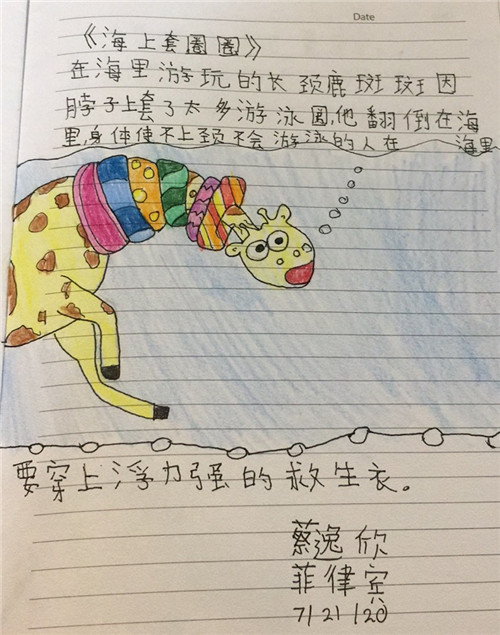 Date
《海上套圈圈》
在海里游玩的长颈鹿斑斑因
脖子上套了太多游泳圈,他翻倒在海
里,身体使不上颈不会游泳的人在 海里
要穿上浮力强的救生衣。
蔡逸欣
菲律宾
7/21/20